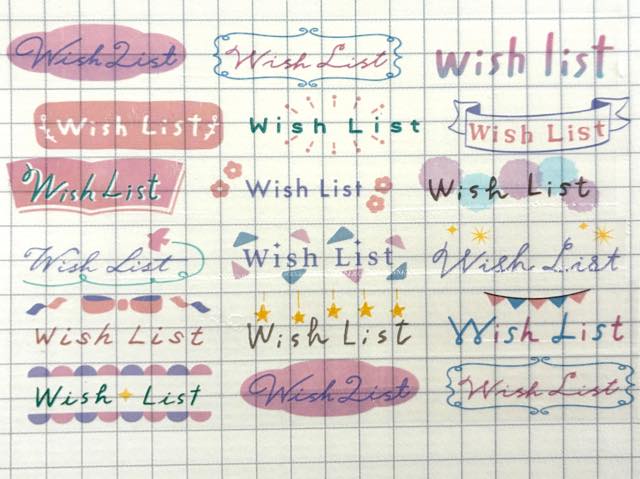 Wish List
Wish List
wish list
Wish List
Wish List
Wish List
Wish List
Wish List
Wish List
Wish List
Wish List
Wish List
Wish List
Wish List
Wish List
Wish List
Wish List
Wish List